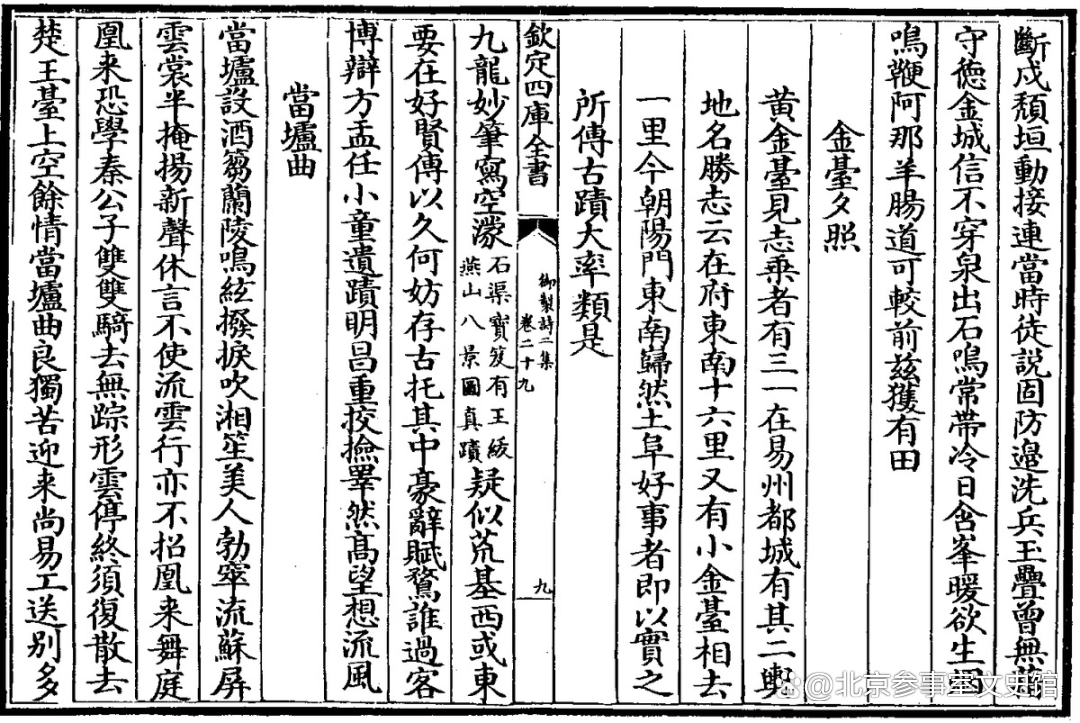 斷戍頹垣動接連當時徒説固防邉洗兵玉疊曾無藉
守徳金城信不穿泉出石鳴常带冷日含峯暖欲生烟
鳴鞭阿那羊腸道可較前兹獲有田
金臺夕照
黄金臺見志乘者有三一在易州都城有其二輿
地名勝志云在府東南十六里又有小金臺相去
一里今朝陽門東南巋然土阜好事者即以實之
所傳古蹟大率類是
欽定四庫全書
御製詩二集
卷二十九
九
九龍妙筆寫空濛
石渠寳笈有王紱
燕山八景圖真蹟
疑似荒基西或東
要在好賢傳以久何妨存古托其中豪辭賦鶩誰過客
博辯方盂任小童遺蹟明昌重挍撿睪然髙望想流風
當壚曲
當壚設酒芻蘭陵鳴絃撥捩吹湘笙美人勃窣流蘇屏
雲裳半掩揚新聲休言不使流雲行亦不招凰来舞庭
凰来恐學秦公子雙雙騎去無踪形雲停終須復散去
楚王臺上空餘情當壚曲良獨苦迎来尚易工送别多
@北京参事室文史馆